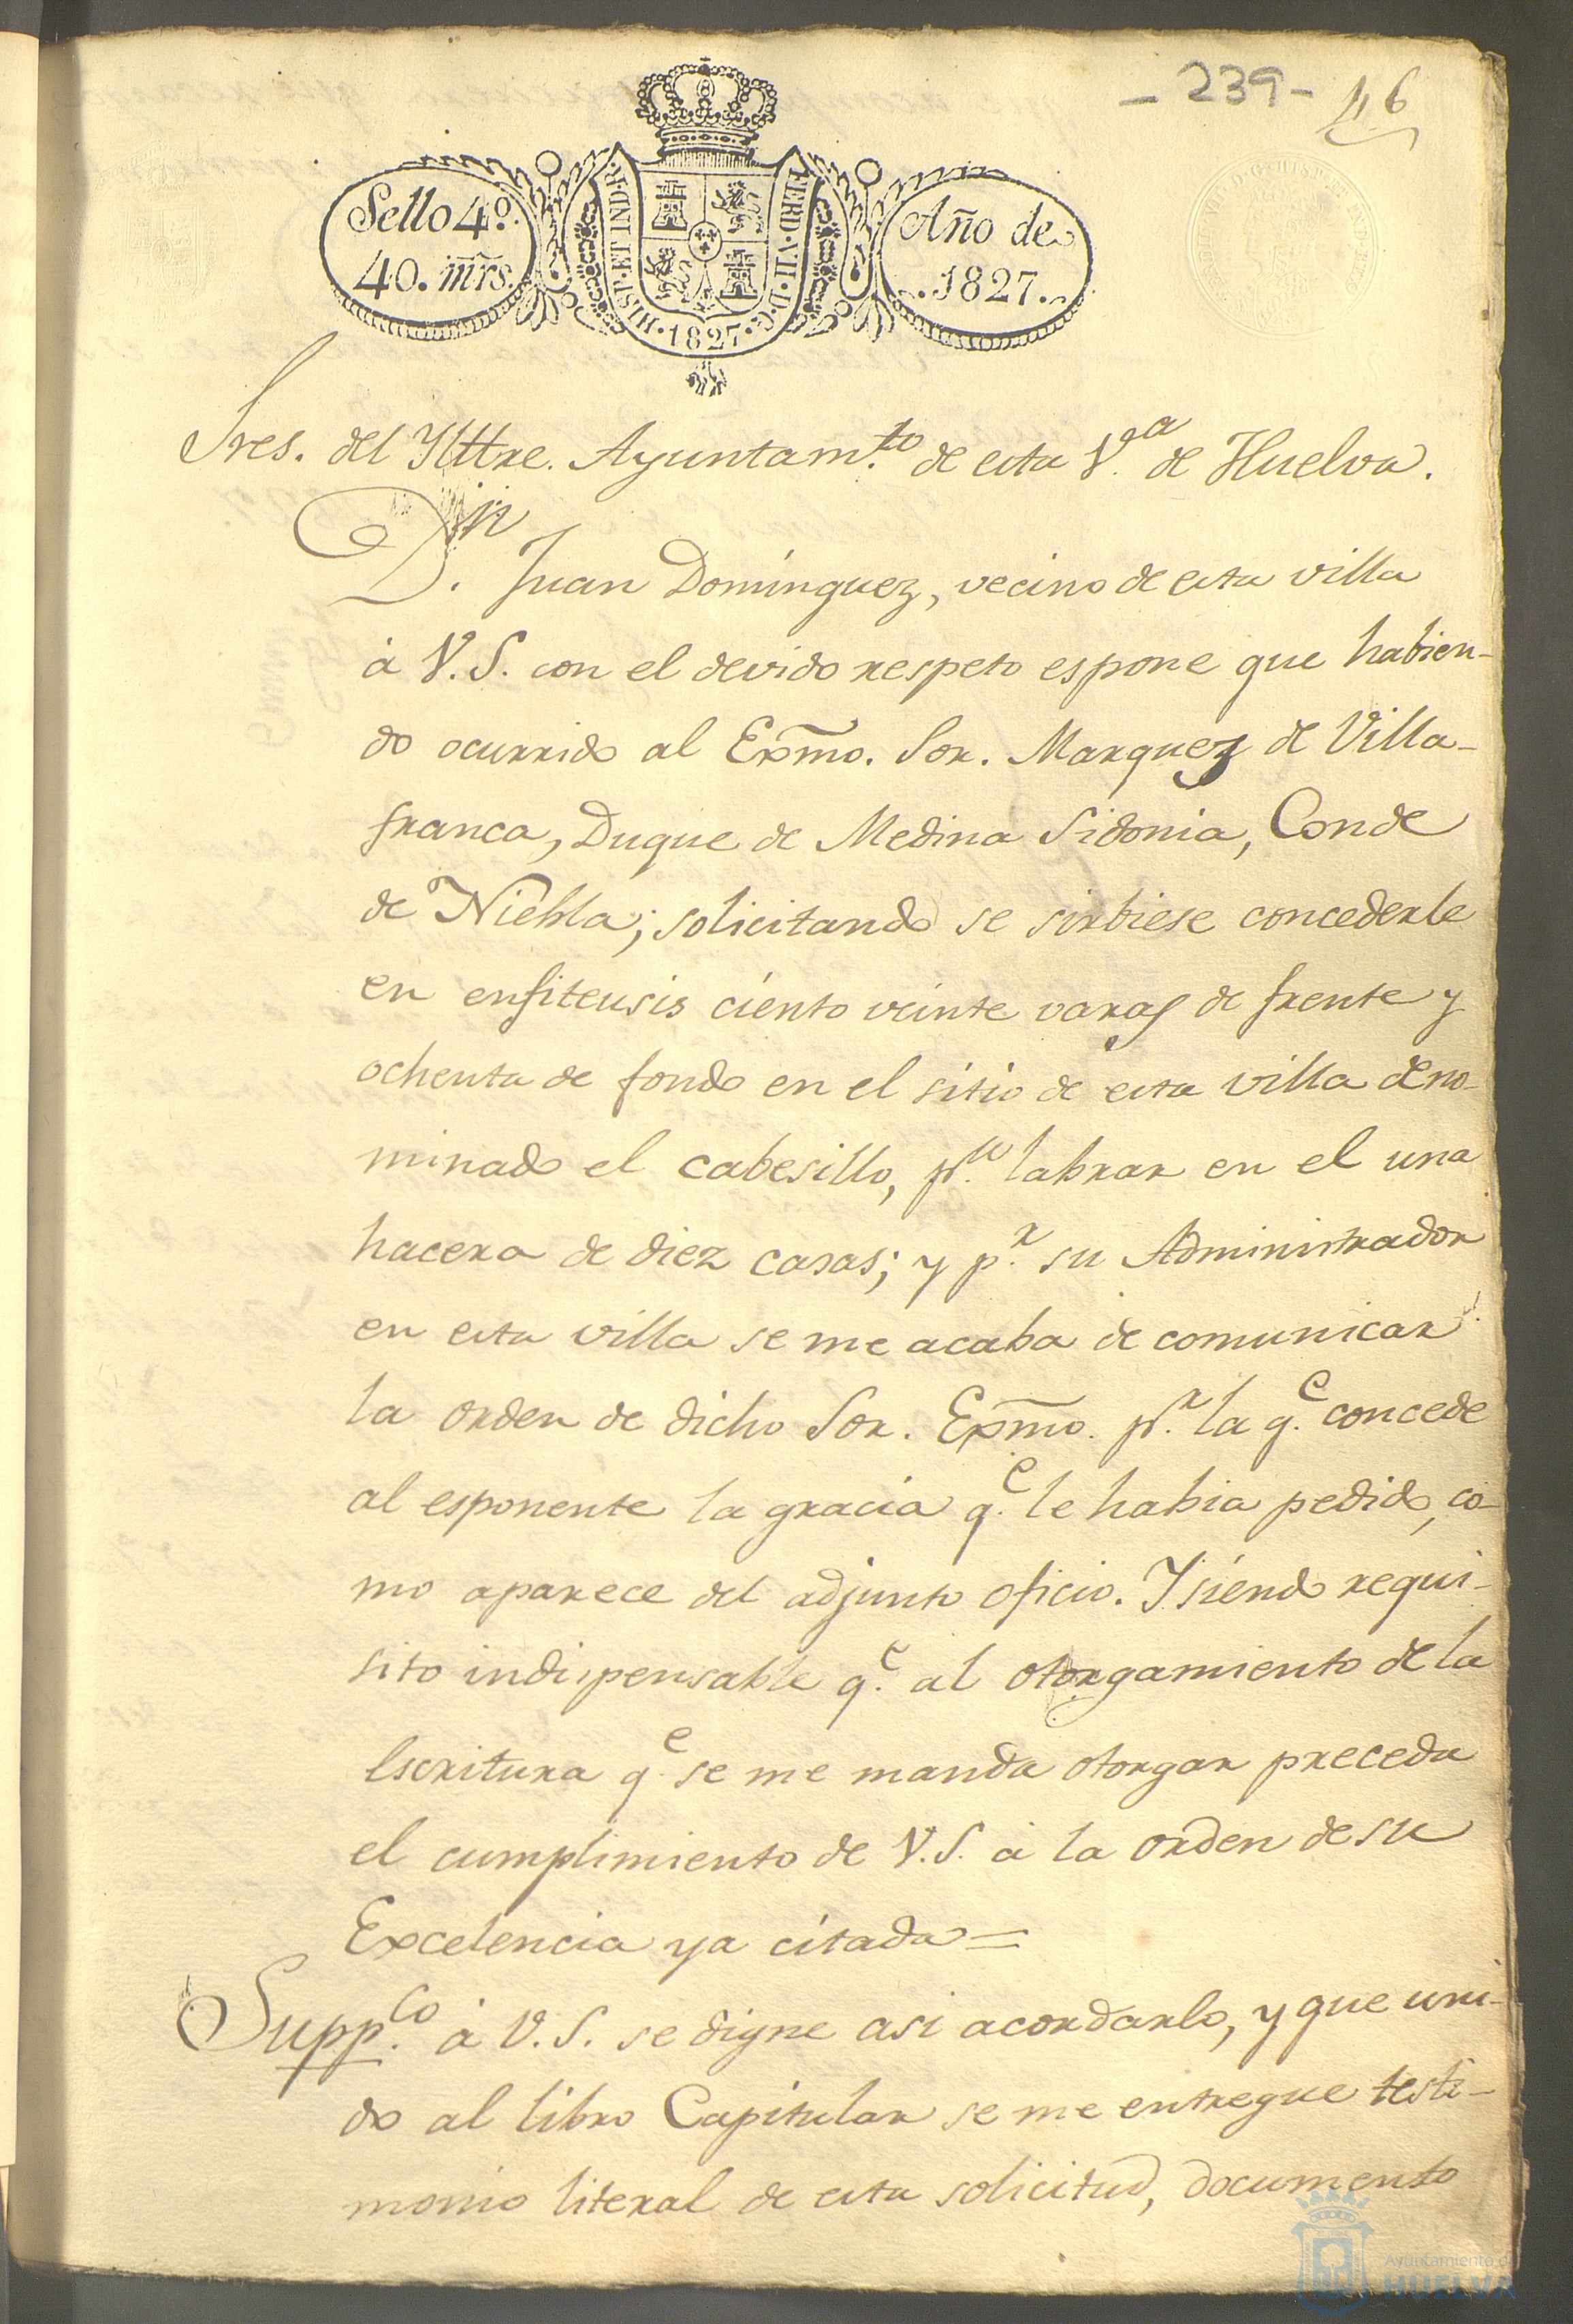 - 239 - 46
Sello 4º.
40. mrs.
HISP. ET IND. R. 1827. FERD. VII. D. G.
Año de
1827.
Sres. del Ylttre. Ayuntam.to de esta V.a de Huelva.
D.n Juan Domínguez, vecino de esta villa
à V.S. con el devido respeto espone que habien-
do ocurrido al Exmo. Sor. Marquez de Villa-
franca, Duque de Medina Sidonia, Conde
de Niebla; solicitando se sirbiese concederle
en enfiteusis ciento veinte varas de frente y
ochenta de fondo en el sitio de esta villa deno-
minado el cabesillo, p.a labrar en el una
hacera de diez casas; y p.r su Administrador
en esta villa se me acaba de comunicar
la orden de dicho Sor. Exmo. p.r la q.e concede
al esponente la gracia q.e le habia pedido, co-
mo aparece del adjunto oficio. Y siendo requi-
sito indispensable q.e al otorgamiento de la
Escritura q.e se me manda otorgar preceda
el cumplimiento de V.S. à la orden de su
Excelencia ya citada =
Supp.co à V.S. se digne asi acordarlo, y que uni-
do al libro Capitular se me entregue testi-
monio literal de esta solicitud, documento
Ayuntamiento de
HUELVA